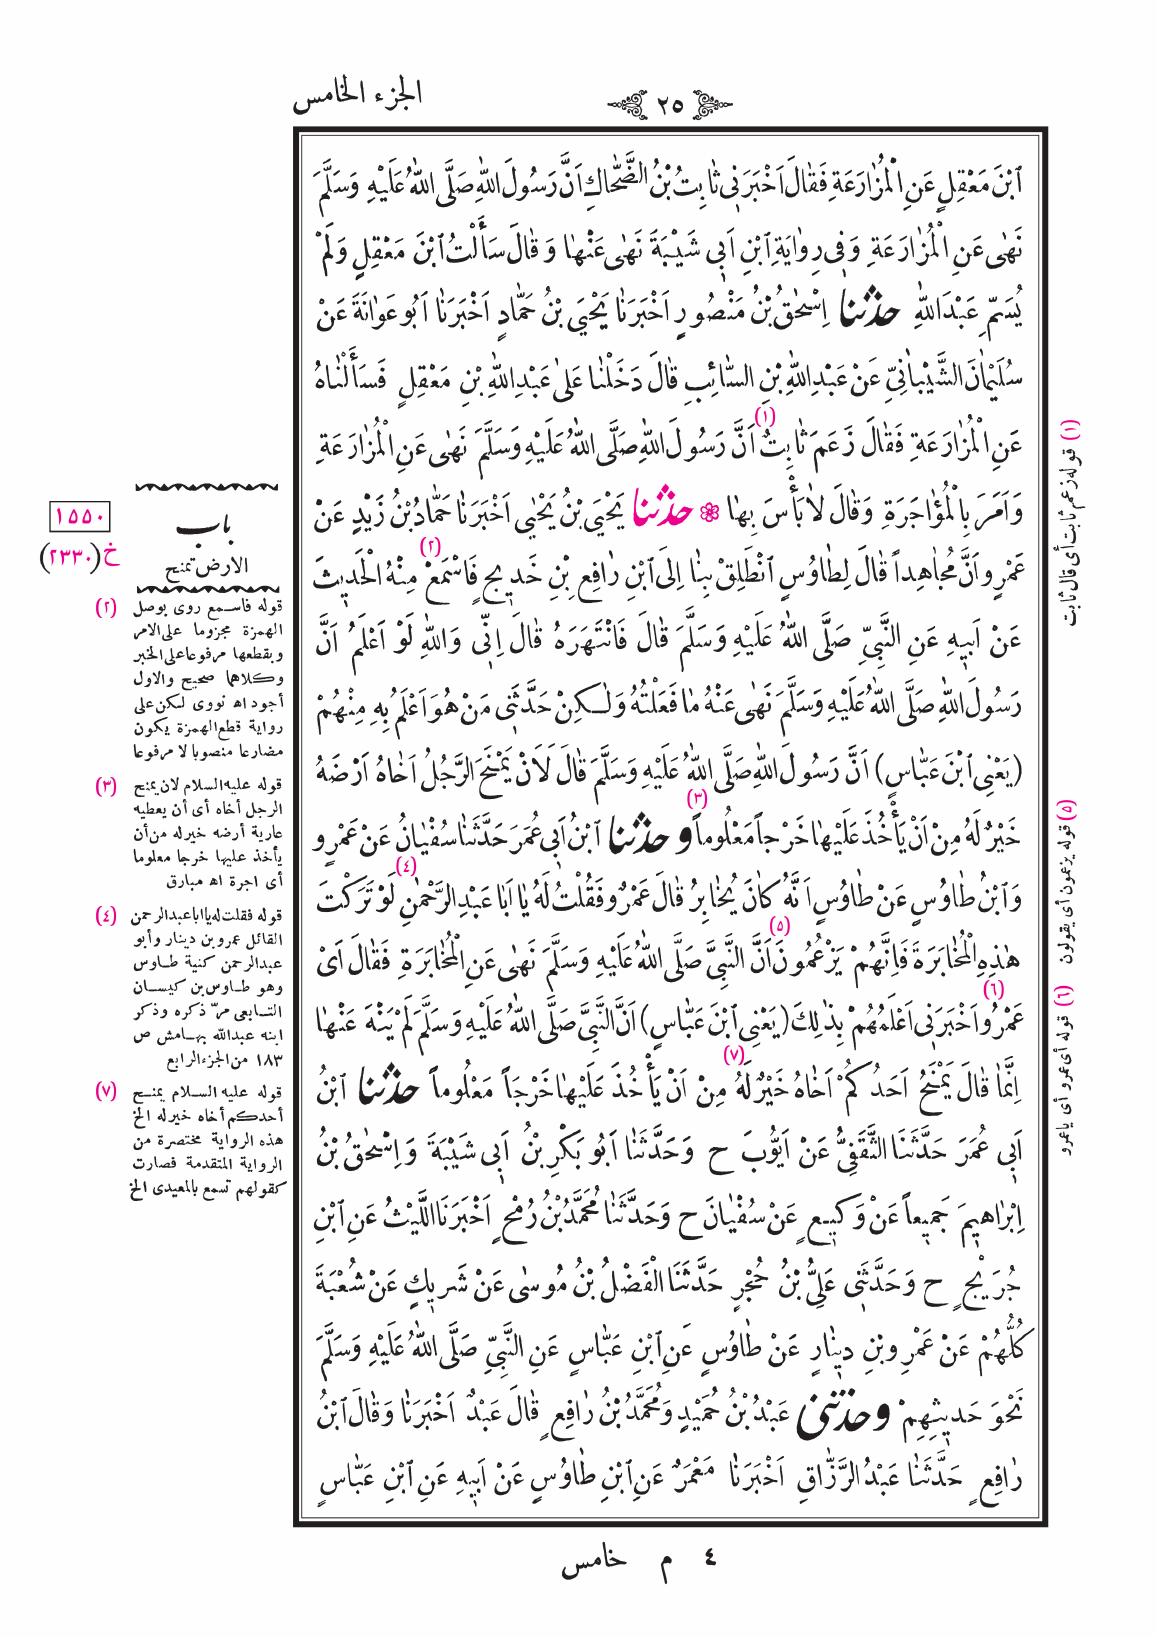 الجزء الخامس
٢٥
ٱبْنَ مَعْقِلٍ عَنِ الْمُزَارَعَةِ فَقَالَ اَخْبَرَنِي ثَابِتُ بْنُ الضَّحَّاكِ اَنَّ رَسُولَ اللّٰهِ صَلَّى اللّٰهُ عَلَيْهِ وَسَلَّمَ
نَهٰى عَنِ الْمُزَارَعَةِ وَفِي رِوَايَةِ ٱبْنِ اَبِي شَيْبَةَ نَهٰى عَنْهَا وَقَالَ سَأَلْتُ ٱبْنَ مَعْقِلٍ وَلَمْ
يُسَمِّ عَبْدَ اللّٰهِ حدثنا اِسْحٰقُ بْنُ مَنْصُورٍ اَخْبَرَنَا يَحْيَى بْنُ حَمَّادٍ اَخْبَرَنَا اَبُو عَوَانَةَ عَنْ
سُلَيْمَانَ الشَّيْبَانِيِّ عَنْ عَبْدِ اللّٰهِ بْنِ السَّائِبِ قَالَ دَخَلْنَا عَلىٰ عَبْدِ اللّٰهِ بْنِ مَعْقِلٍ فَسَأَلْنَاهُ
عَنِ الْمُزَارَعَةِ فَقَالَ زَعَمَ ثَابِتٌ (١) اَنَّ رَسُولَ اللّٰهِ صَلَّى اللّٰهُ عَلَيْهِ وَسَلَّمَ نَهٰى عَنِ الْمُزَارَعَةِ
وَاَمَرَ بِالْمُؤَاجَرَةِ وَقَالَ لَا بَأْسَ بِهَا ❁ حدثنا يَحْيَى بْنُ يَحْيٰى اَخْبَرَنَا حَمَّادُ بْنُ زَيْدٍ عَنْ
عَمْرٍو اَنَّ مُجَاهِداً قَالَ لِطَاوُسٍ ٱنْطَلِقْ بِنَا اِلَى ٱبْنِ رَافِعِ بْنِ خَدِيجٍ فَاسْمَعْ (٢) مِنْهُ الْحَدِيثَ
عَنْ اَبِيهِ عَنِ النَّبِيِّ صَلَّى اللّٰهُ عَلَيْهِ وَسَلَّمَ قَالَ فَانْتَهَرَهُ قَالَ اِنِّي وَاللّٰهِ لَوْ اَعْلَمُ اَنَّ
رَسُولَ اللّٰهِ صَلَّى اللّٰهُ عَلَيْهِ وَسَلَّمَ نَهٰى عَنْهُ مَا فَعَلْتُهُ وَلٰكِنْ حَدَّثَنِي مَنْ هُوَ اَعْلَمُ بِهِ مِنْهُمْ
(يَعْنِي ٱبْنَ عَبَّاسٍ) اَنَّ رَسُولَ اللّٰهِ صَلَّى اللّٰهُ عَلَيْهِ وَسَلَّمَ قَالَ لَاَنْ يَمْنَحَ الرَّجُلُ اَخَاهُ اَرْضَهُ
خَيْرٌ لَهُ مِنْ اَنْ يَأْخُذَ عَلَيْهَا خَرْجاً مَعْلُوماً (٣) وحدثنا ٱبْنُ اَبِي عُمَرَ حَدَّثَنَا سُفْيَانُ عَنْ عَمْرٍو
وَٱبْنُ طَاوُسٍ عَنْ طَاوُسٍ اَنَّهُ كَانَ يُخَابِرُ قَالَ عَمْرٌو فَقُلْتُ لَهُ يَا اَبَا عَبْدِ الرَّحْمٰنِ (٤) لَوْ تَرَكْتَ
هٰذِهِ الْمُخَابَرَةَ فَاِنَّهُمْ يَزْعُمُونَ (٥) اَنَّ النَّبِيَّ صَلَّى اللّٰهُ عَلَيْهِ وَسَلَّمَ نَهٰى عَنِ الْمُخَابَرَةِ فَقَالَ اَيْ
عَمْرُو (٦) اَخْبَرَنِي اَعْلَمُهُمْ بِذٰلِكَ (يَعْنِي ٱبْنَ عَبَّاسٍ) اَنَّ النَّبِيَّ صَلَّى اللّٰهُ عَلَيْهِ وَسَلَّمَ لَمْ يَنْهَ عَنْهَا
اِنَّمَا قَالَ يَمْنَحُ اَحَدُكُمْ اَخَاهُ خَيْرٌ لَهُ (٧) مِنْ اَنْ يَأْخُذَ عَلَيْهَا خَرْجَاً مَعْلُوماً حدثنا ٱبْنُ
اَبِي عُمَرَ حَدَّثَنَا الثَّقَفِيُّ عَنْ اَيُّوبَ ح وَحَدَّثَنَا اَبُو بَكْرِ بْنُ اَبِي شَيْبَةَ وَاِسْحٰقُ بْنُ
اِبْرَاهِيمَ جَمِيعاً عَنْ وَكِيعٍ عَنْ سُفْيَانَ ح وَحَدَّثَنَا مُحَمَّدُ بْنُ رُمْحٍ اَخْبَرَنَا اللَّيْثُ عَنِ ٱبْنِ
جُرَيْجٍ ح وَحَدَّثَنِي عَلِيُّ بْنُ حُجْرٍ حَدَّثَنَا الْفَضْلُ بْنُ مُوسٰى عَنْ شَرِيكٍ عَنْ شُعْبَةَ
كُلُّهُمْ عَنْ عَمْرِو بْنِ دِينَارٍ عَنْ طَاوُسٍ عَنِ ٱبْنِ عَبَّاسٍ عَنِ النَّبِيِّ صَلَّى اللّٰهُ عَلَيْهِ وَسَلَّمَ
نَحْوَ حَدِيثِهِمْ وحدثنى عَبْدُ بْنُ حُمَيْدٍ وَمُحَمَّدُ بْنُ رَافِعٍ قَالَ عَبْدٌ اَخْبَرَنَا وَقَالَ ٱبْنُ
رَافِعٍ حَدَّثَنَا عَبْدُ الرَّزَّاقِ اَخْبَرَنَا مَعْمَرٌ عَنِ ٱبْنِ طَاوُسٍ عَنْ اَبِيهِ عَنِ ٱبْنِ عَبَّاسٍ
(١) قوله زعم ثابت أى قال ثابت
(٥) قوله يزعمون أى يقولون
(٦) قوله أى عمرو أى ياعمرو
باب
الارض تمنح
١٥٥٠
خ (٢٣٣٠)
(٢) قوله فاسمع روى بوصل
الهمزة مجزوما على الامر
وبقطعها مرفوعا على الخبر
وكلاهما صحيح والاول
أجود اه نووى لكن على
رواية قطع الهمزة يكون
مضارعا منصوبا لا مرفوعا
(٣) قوله عليه السلام لان يمنح
الرجل أخاه أى أن يعطيه
عارية أرضه خيرله من أن
يأخذ عليها خرجا معلوما
أى اجرة اه مبارق
(٤) قوله فقلت له يا ابا عبدالرحمن
القائل عمرو بن دينار وأبو
عبدالرحمن كنية طاوس
وهو طاوس بن كيسان
التابعى مرّ ذكره وذكر
ابنه عبدالله بهامش ص
١٨٣ من الجزء الرابع
(٧) قوله عليه السلام يمنح
أحدكم أخاه خيرله الخ
هذه الرواية مختصرة من
الرواية المتقدمة فصارت
كقولهم تسمع بالمعيدى الخ
٤ م خامس